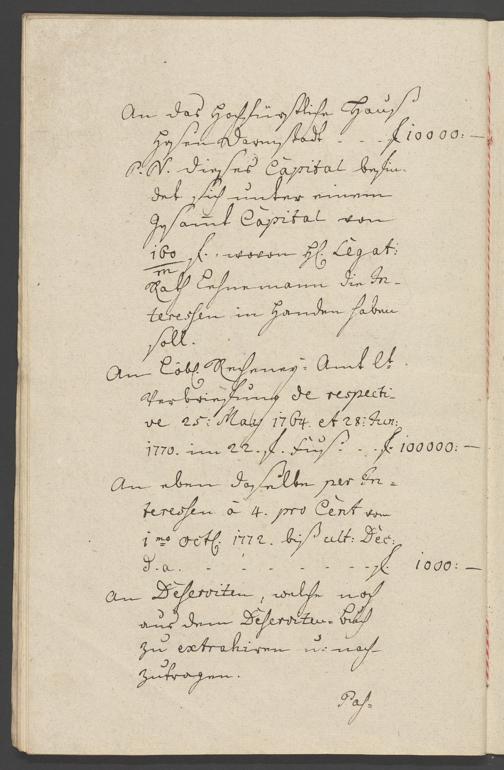 An das Hochfürstliche Hauß
Hessen Darmstadt . . . f 10000: —
P. N. dieses Capital befin-
det sich unter einem
Gesamt Capital von
160/m f. wovon H. Legat:
Rath Lehnemann die In-
teressen in Handen haben
soll.
An Löbl. Recheney-Amt lt.
Verbriefung de respecti-
ve 25: May 1764. et 28: Jun:
1770. im 22. f. Fus: . . f. 100000: —
An eben daselbe per In-
teressen à 4. pro Cent vom
1mo Octb. 1772. biß ult: Dec:
d. a. . . . f. 1000: —
An Deserviten, welche noch
aus dem Deserviten-Buch
zu extrahiren u: nach-
zutragen.
Pas-